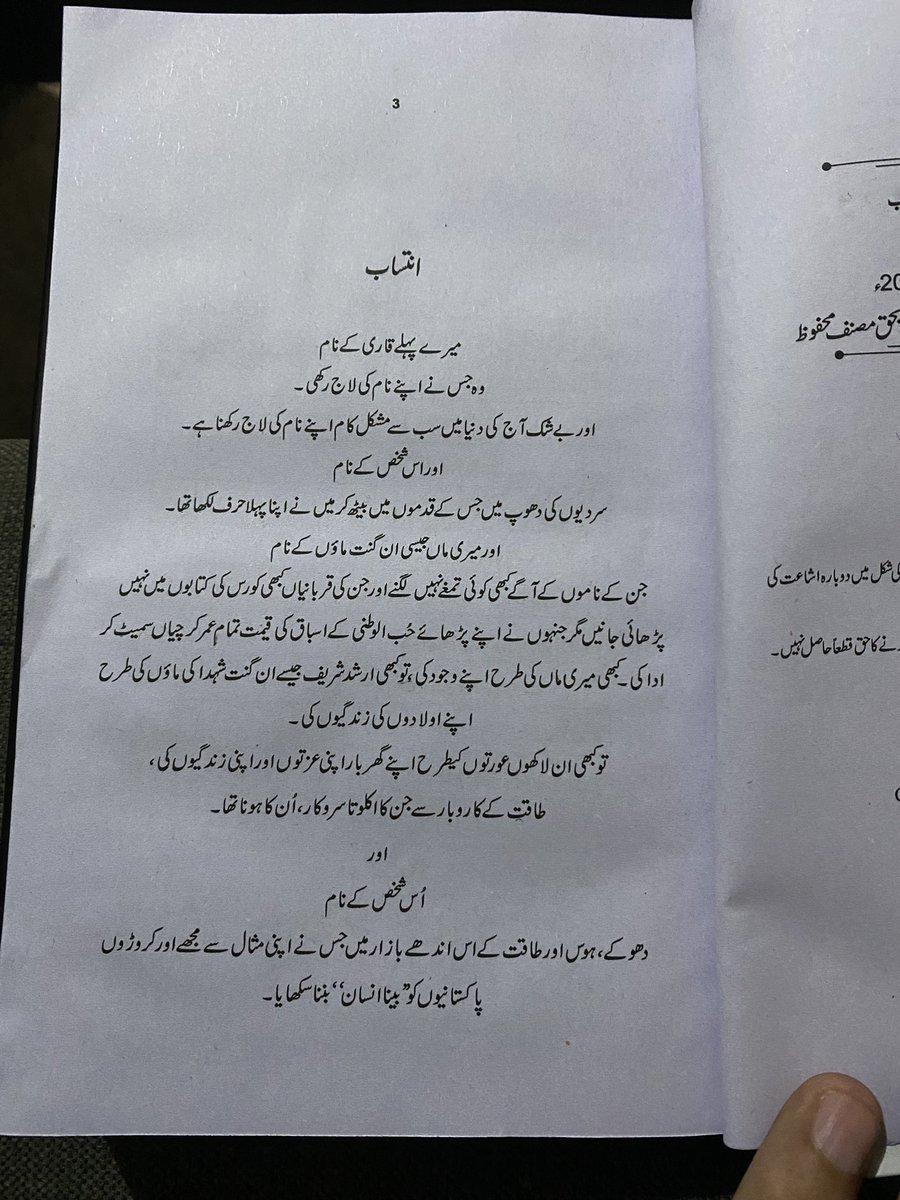 3
انتساب
میرے پہلے قاری کے نام
وہ جس نے اپنے نام کی لاج رکھی۔
اور بے شک آج کی دنیا میں سب سے مشکل کام اپنے نام کی لاج رکھنا ہے۔
اور اس شخص کے نام
سردیوں کی دھوپ میں جس کے قدموں میں بیٹھ کر میں نے اپنا پہلا حرف لکھا تھا۔
اور میری ماں جیسی ان گنت ماؤں کے نام
جن کے ناموں کے آگے کبھی کوئی تمغے نہیں لگنے اور جن کی قربانیاں کبھی کورس کی کتابوں میں نہیں
پڑھائی جانیں مگر جنہوں نے اپنے پڑھائے حُب الوطنی کے اسباق کی قیمت تمام عمر کرچیاں سمیٹ کر
ادا کی۔ کبھی میری ماں کی طرح اپنے وجود کی، تو کبھی ارشد شریف جیسے ان گنت شہدا کی ماؤں کی طرح
اپنے اولادوں کی زندگیوں کی۔
تو کبھی ان لاکھوں عورتوں کیطرح اپنے گھر بار اپنی عزتوں اور اپنی زندگیوں کی،
طاقت کے کاروبار سے جن کا اکلوتا سروکار، اُن کا ہونا تھا۔
اور
اُس شخص کے نام
دھوکے، ہوس اور طاقت کے اس اندھے بازار میں جس نے اپنی مثال سے مجھے اور کروڑوں
پاکستانیوں کو ”بینا انسان“ بننا سکھایا۔
20ء
بحق مصنف محفوظ
کی شکل میں دوبارہ اشاعت کی
نے کا حق قطعاً حاصل نہیں۔